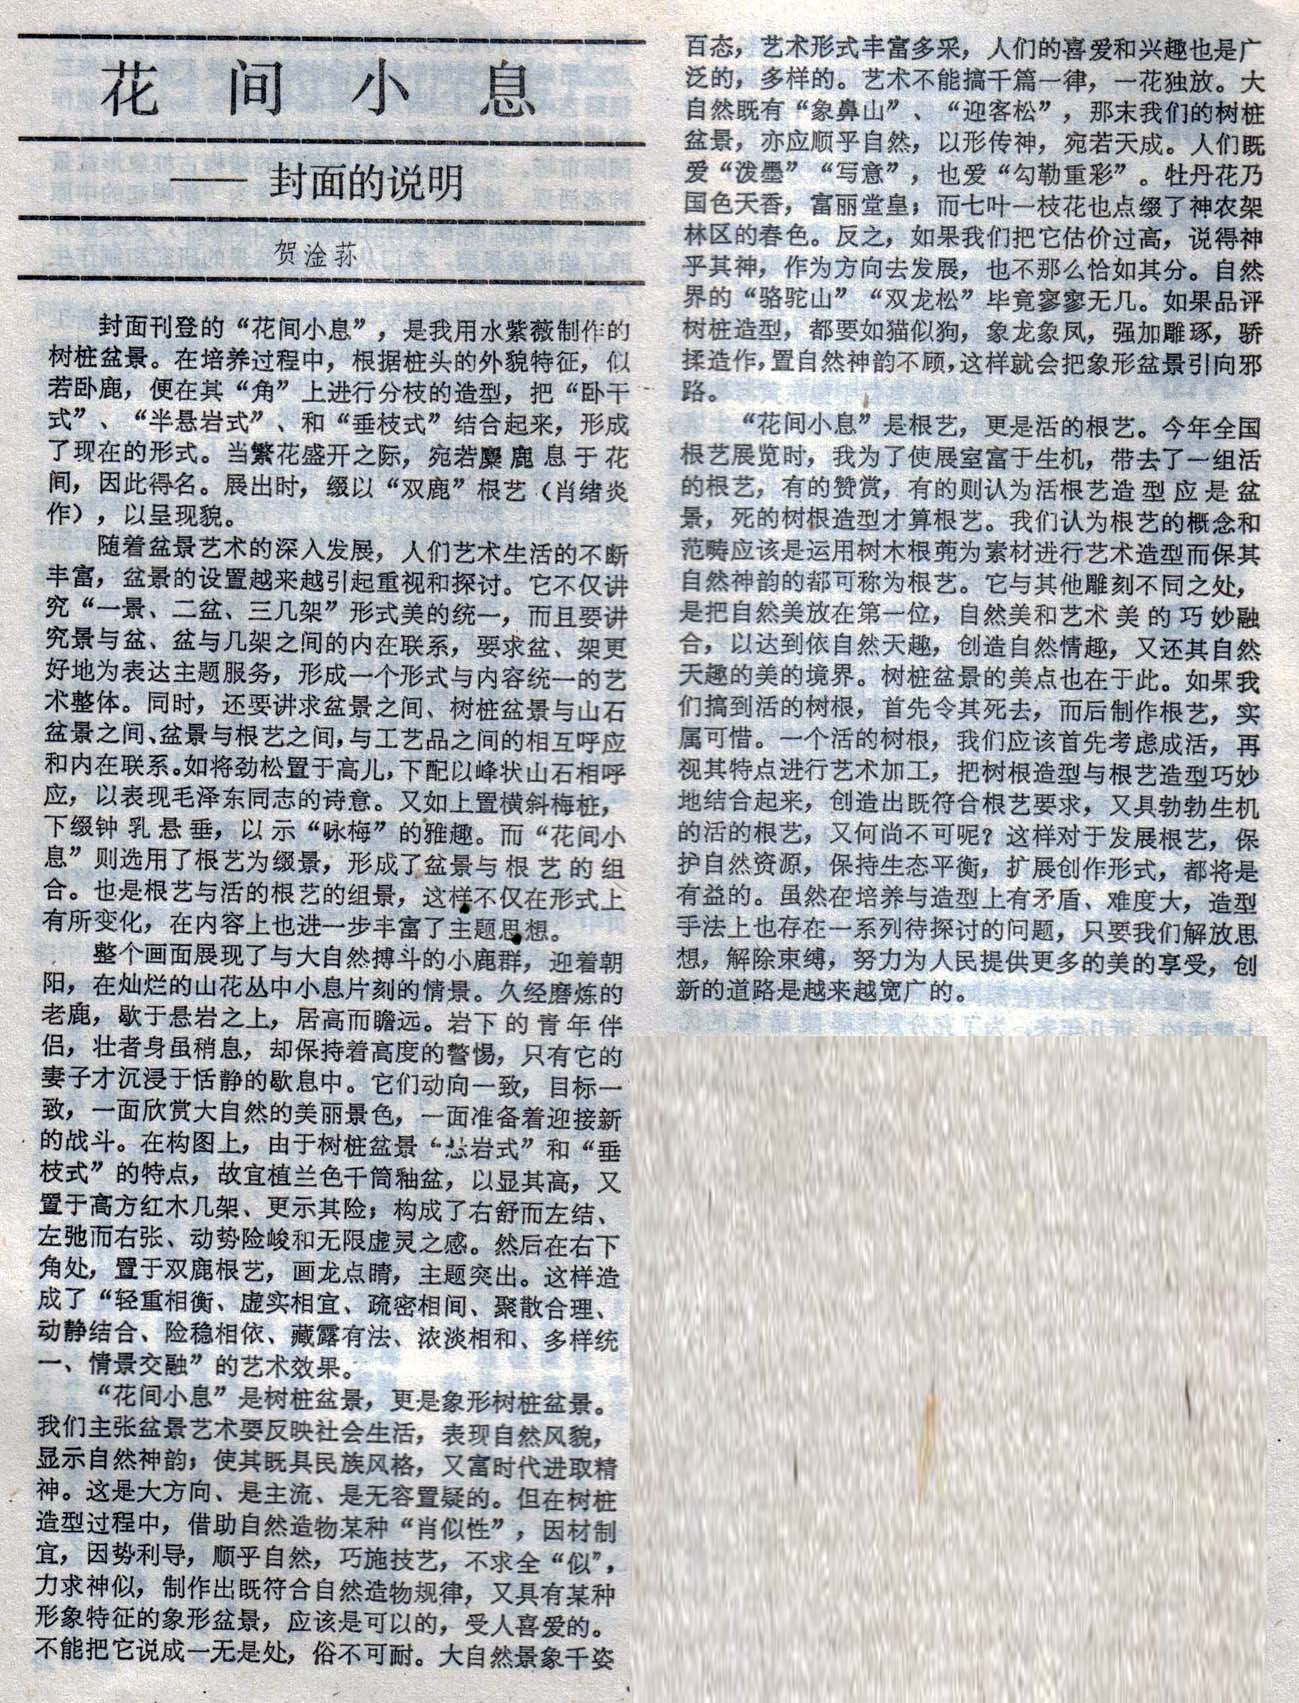 花间小息
——封面的说明
贺淦荪
封面刊登的“花间小息”，是我用水紫薇制作的
树桩盆景。在培养过程中，根据桩头的外貌特征，似
若卧鹿，便在其“角”上进行分枝的造型，把“卧干
式”、“半悬岩式”、和“垂枝式”结合起来，形成
了现在的形式。当繁花盛开之际，宛若麋鹿息于花
间，因此得名。展出时，缀以“双鹿”根艺（肖绪炎
作），以呈现貌。
随着盆景艺术的深入发展，人们艺术生活的不断
丰富，盆景的设置越来越引起重视和探讨。它不仅讲
究“一景、二盆、三几架”形式美的统一，而且要讲
究景与盆、盆与几架之间的内在联系，要求盆、架更
好地为表达主题服务，形成一个形式与内容统一的艺
术整体。同时，还要讲求盆景之间、树桩盆景与山石
盆景之间、盆景与根艺之间，与工艺品之间的相互呼应
和内在联系。如将劲松置于高几，下配以峰状山石相呼
应，以表现毛泽东同志的诗意。又如上置横斜梅桩，
下缀钟乳悬垂，以示“咏梅”的雅趣。而“花间小
息”则选用了根艺为缀景，形成了盆景与根艺的组
合。也是根艺与活的根艺的组景，这样不仅在形式上
有所变化，在内容上也进一步丰富了主题思想。
整个画面展现了与大自然搏斗的小鹿群，迎着朝
阳，在灿烂的山花丛中小息片刻的情景。久经磨炼的
老鹿，歇于悬岩之上，居高而瞻远。岩下的青年伴
侣，壮者身虽稍息，却保持着高度的警惕，只有它的
妻子才沉浸于恬静的歇息中。它们动向一致，目标一
致，一面欣赏大自然的美丽景色，一面准备着迎接新
的战斗。在构图上，由于树桩盆景“悬岩式”和“垂
枝式”的特点，故宜植兰色千筒釉盆，以显其高，又
置于高方红木几架、更示其险；构成了右舒而左结、
左弛而右张、动势险峻和无限虚灵之感。然后在右下
角处，置于双鹿根艺，画龙点睛，主题突出。这样造
成了“轻重相衡、虚实相宜、疏密相间、聚散合理、
动静结合、险稳相依、藏露有法、浓淡相和、多样统
一、情景交融”的艺术效果。
“花间小息”是树桩盆景，更是象形树桩盆景。
我们主张盆景艺术要反映社会生活，表现自然风貌，
显示自然神韵；使其既具民族风格，又富时代进取精
神。这是大方向、是主流、是无容置疑的。但在树桩
造型过程中，借助自然造物某种“肖似性”，因材制
宜，因势利导，顺乎自然，巧施技艺，不求全“似”，
力求神似，制作出既符合自然造物规律，又具有某种
形象特征的象形盆景，应该是可以的，受人喜爱的。
不能把它说成一无是处，俗不可耐。大自然景象千姿
百态，艺术形式丰富多采，人们的喜爱和兴趣也是广
泛的，多样的。艺术不能搞千篇一律，一花独放。大
自然既有“象鼻山”、“迎客松”，那末我们的树桩
盆景，亦应顺乎自然，以形传神，宛若天成。人们既
爱“泼墨”“写意”，也爱“勾勒重彩”。牡丹花乃
国色天香，富丽堂皇；而七叶一枝花也点缀了神农架
林区的春色。反之，如果我们把它估价过高，说得神
乎其神，作为方向去发展，也不那么恰如其分。自然
界的“骆驼山”“双龙松”毕竟寥寥无几。如果品评
树桩造型，都要如猫似狗，象龙象凤，强加雕琢，骄
揉造作，置自然神韵不顾，这样就会把象形盆景引向邪
路。
“花间小息”是根艺，更是活的根艺。今年全国
根艺展览时，我为了使展室富于生机，带去了一组活
的根艺，有的赞赏，有的则认为活根艺造型应是盆
景，死的树根造型才算根艺。我们认为根艺的概念和
范畴应该是运用树木根蔸为素材进行艺术造型而保其
自然神韵的都可称为根艺。它与其他雕刻不同之处，
是把自然美放在第一位，自然美和艺术美的巧妙融
合，以达到依自然天趣，创造自然情趣，又还其自然
天趣的美的境界。树桩盆景的美点也在于此。如果我
们搞到活的树根，首先令其死去，而后制作根艺，实
属可惜。一个活的树根，我们应该首先考虑成活，再
视其特点进行艺术加工，把树根造型与根艺造型巧妙
地结合起来，创造出既符合根艺要求，又具勃勃生机
的活的根艺，又何尚不可呢？这样对于发展根艺，保
护自然资源，保持生态平衡，扩展创作形式，都将是
有益的。虽然在培养与造型上有矛盾、难度大，造型
手法上也存在一系列待探讨的问题，只要我们解放思
想，解除束缚，努力为人民提供更多的美的享受，创
新的道路是越来越宽广的。